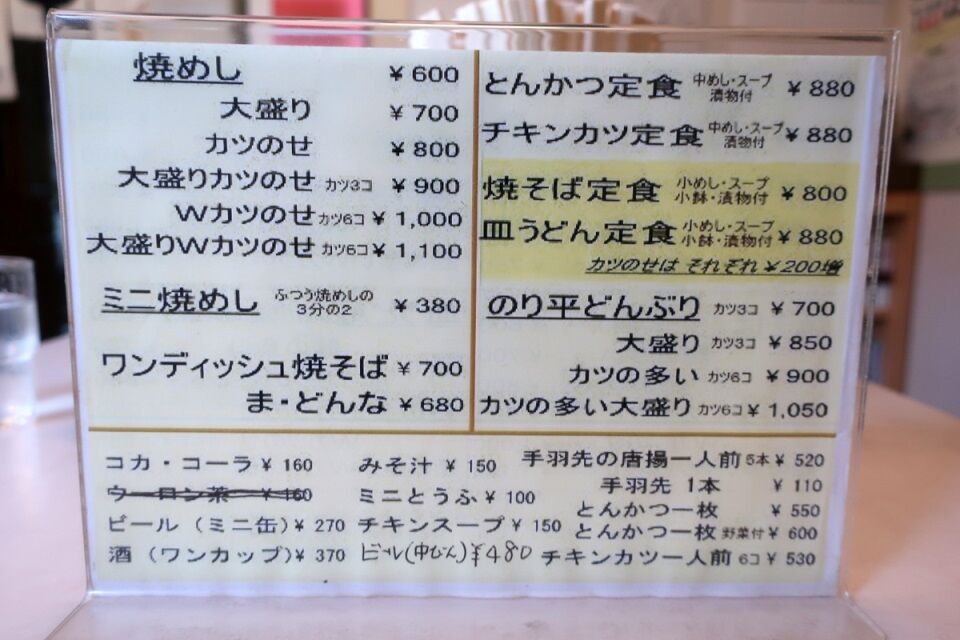 焼めし ￥600
大盛り ￥700
カツのせ ￥800
大盛りカツのせ カツ3コ ￥900
Wカツのせ カツ6コ ￥1,000
大盛りWカツのせ カツ6コ ￥1,100
ミニ焼めし ふつう焼めしの3分の2 ￥380
ワンディッシュ焼そば ￥700
ま・どんな ￥680
とんかつ定食 中めし・スープ漬物付 ￥880
チキンカツ定食 中めし・スープ漬物付 ￥880
焼そば定食 小めし・スープ小鉢・漬物付 ￥800
皿うどん定食 小めし・スープ小鉢・漬物付 ￥880
カツのせは それぞれ￥200増
のり平どんぶり カツ3コ ￥700
大盛り カツ3コ ￥850
カツの多い カツ6コ ￥900
カツの多い大盛り カツ6コ ￥1,050
コカ・コーラ ￥160
ウーロン茶 ￥160
ビール（ミニ缶）￥270
酒（ワンカップ）￥370
みそ汁 ￥150
ミニとうふ ￥100
チキンスープ ￥150
ビール(中びん)￥480
手羽先の唐揚一人前 5本 ￥520
手羽先 1本 ￥110
とんかつ一枚 ￥550
とんかつ一枚 野菜付 ￥600
チキンカツ一人前 6コ ￥530